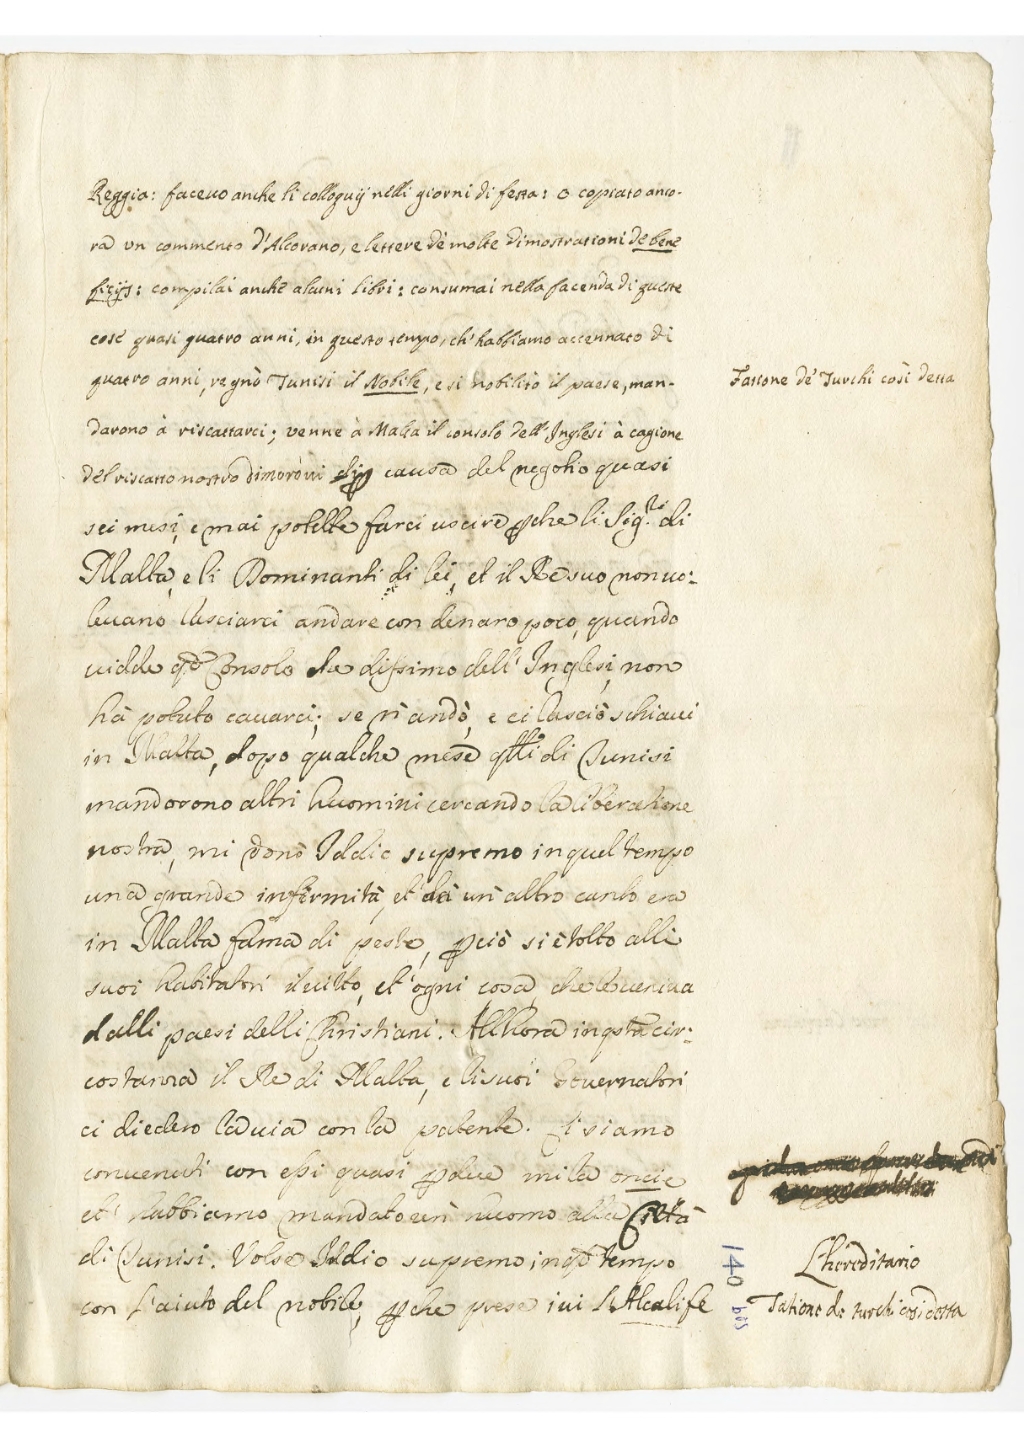 Reggia: facevo anche li colloquij nelli giorni di festa: ò copiato anco-
ra vn commento d'Alcorano, e lettere de molte dimostrationi de bene
fizijs: compilai anche alcuni libri: consumai nella facenda di queste
cose quasi quatro anni, in questo tempo, ch'habbiamo accennato di
quatro anni, regnò Tunisi il Nobile, e si nobilitò il paese, man-
Fattone de' Turchi così detta
darono à riscattarci; venne à Malta il consolo dell'Inglesi à cagione
del riscatto nostro dimorò ivi causa del negotio quasi
sei mesi, e mai potette farci uscire pche li Sig.ri di
Malta, e li Dominanti di lei, et il Re suo non uo-
leuano lasciarci andare con denaro poco, quando
uidde q.o Consolo dell' Inglesi, non
hà potuto cauarci; se n'andò, e ci lasciò schiaui
in Malta, dopo qualche mese qlli di Tunisi
mandorono altri huomini cercando la liberatione
nostra, mi donò Iddio supremo in quel tempo
una grande infermità, et da un'altro canto era
in Malta fama di peste, pciò si è tolto alli
suoi habitatori il uitto, et ogni cosa, che le ueniua
dalli paesi delli Christiani. Allhora in qsta cir-
costanza il Re di Malta, e li suoi Gouernatori
ci diedero la uia con la patente. Ci siamo
conuenuti con essi quasi p due mila oncie
et habbiamo mandato un huomo alla Città
di Tunisi. Volse Iddio supremo in qo tempo
L'hereditario
con l'aiuto del nobile, pche prese iui l'Alcalife
Fatione de turchi così detta
140 bis